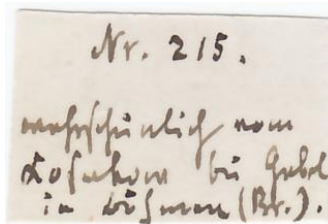 Nr. 215.
wahrscheinlich vom
bei Gabel
in Böhmen (Br.).